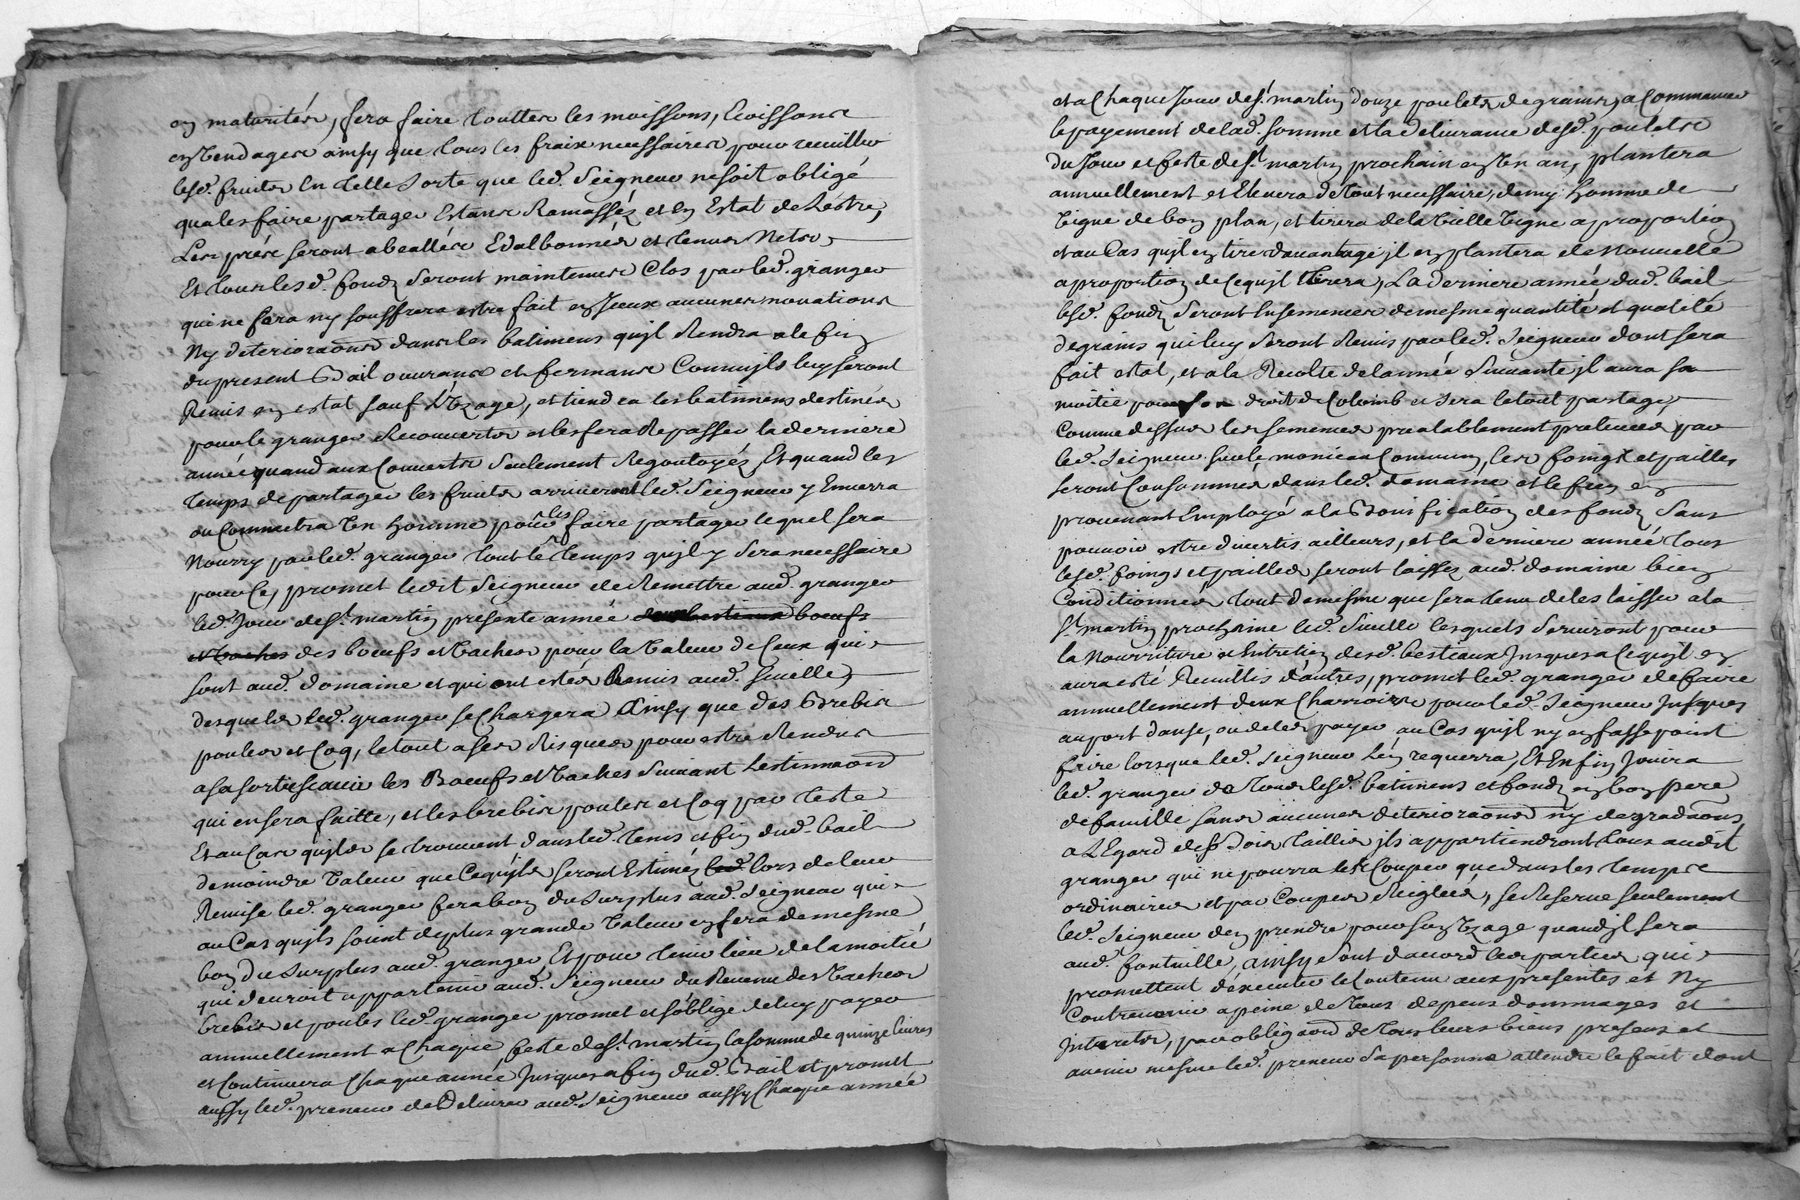 en maturitéz, fera faire touttes les moissons, leoissons
et vendages ainsy que tous les fraix necessaires pour receuillir
lesd. fruits En telle sorte que led. Seigneur ne soit obligé
qua les faire partager Estans Ramassés et En Estat de Lestre,
Les prés seront abeallés Edalbonnés et tenus Nets,
Et tous lesd. fonds seront maintenus Clos par led. granger
qui ne fera ny souffrera estre fait en Iceux aucunes novations
Ny deterioraons dans les batimens quil Rendra a le fin
du present Bail ouvrans et fermans Comm'ils luy seront
Remis en estat sauf L'Vzage, et tiendra les batimens destinés
pour le granger Recouverts et les fera Repasser la derniere
année quand aux Couverts seulement Regoutoyés, Et quand les
temps de partager les fruits arriveront led. Seigneur y Enverra
ou Commettra Un homme pour les faire partager lequel sera
Nourry par led. granger tout le temps quil y sera necessaire
pour Ce, promet ledit Seigneur de Remettre aud. granger
led. Jour de St. martin presente année des bestiaux boeufs
et Vaches des boeufs et Vaches pour la Valeur de Ceux qui
sont aud. domaine et qui ont estés Remis aud. Suelle,
desquels led. granger se Chargera Ainsy que des Brebis
poules et Coq, le tout a ses Risques pour estre Rendus
a sa sortie scavoir les Boeufs et Vaches suivant Lestimaon
qui en sera faitte, et les brebis poules et Coq par teste
Et au Cas quils se trouvent dans led. tems et fin dud. bail
de moindre Valeur que Ce quils seront Estimés led. lors de leur
Remise led. granger fera bon du surplus aud. Seigneur qui
au Cas quils soient de plus grande Valeur en fera de mesme
bon du surplus aud. granger Et pour tenir lieu de la moitié
qui devroit appartenir aud. Seigneur du Revenu des Vaches
brebis et poules led. granger promet et s'oblige de luy payer
annuellement a Chaque feste de St. martin la somme de quinze livres
et Continuera Chaque année Jusques a fin dud. Bail et promet
aussy led. preneur de Delivrer aud. Seigneur aussy Chaque année
et a Chaque Jour de St. martin douze poulets de grains, a Commencer
le payement de lad. somme et la delivrance desd. poulets
du Jour et feste de St. martin prochain en Un an, plantera
annuellement et Elevera de Tout necessaire, demy homme de
Vigne de bon plan, et tirera de la Vielle Vigne a proportion
et au Cas quil en tire davantage il en plantera de Nouvelle
a proportion de Ce quil tirera, La derniere année dud. bail
lesd. fonds seront Ensemencés de mesme quantité et qualité
de grains qui luy seront Remis par led. Seigneur dont sera
fait estat, et a la Recolte de lannée Suivante il aura sa
moitié pour son droit de Colomb et sera le tout partagé
Comme dessus les semences prealablement prelevées par
led. Seigneur sur le monceau Commun, les foings et pailles
seront Consommés dans led. domaine et le fien en
provenant Employé a la Bonification des fonds Sans
pouvoir estre divertis ailleurs, et la derniere année tous
lesd. foings et pailles seront laissés aud. domaine bien
Conditionnés, tout de mesme que sera tenu de les laisser a la
St. martin prochaine led. Suelle lesquels serviront pour
la Nourriture et Entretien desd. bestiaux Jusques a Ce quil en
aura esté Recuillis d'autres, promet led. granger de faire
annuellement deux Charrois pour led. Seigneur Jusques
au port danse, ou de les payer au Cas quil ny en fasse point
faire lorsque led. Seigneur Len requerra, Et Enfin Jouira
led. granger de Tous lesd. batimens et fonds en bon pere
de famille sans aucunes deterioraons ny degradaons,
a LEgard des Bois taillis ils appartiendront tous audit
granger qui ne pourra les Couper que dans les temps
ordinaires et par Coupes Reglées, se Reserve seulement
led. Seigneur den prendre pour son Vzage quand il sera
aud. fontville, ainsy sont daccord les parties qui
promettent dexecuter le Contenu aux presentes et Ny
Contrevenir a peine de Tous depens dommages et
Interets, par obligaon de Tous leurs biens presens et
avenir mesme led. preneur sa personne attendu le fait dont